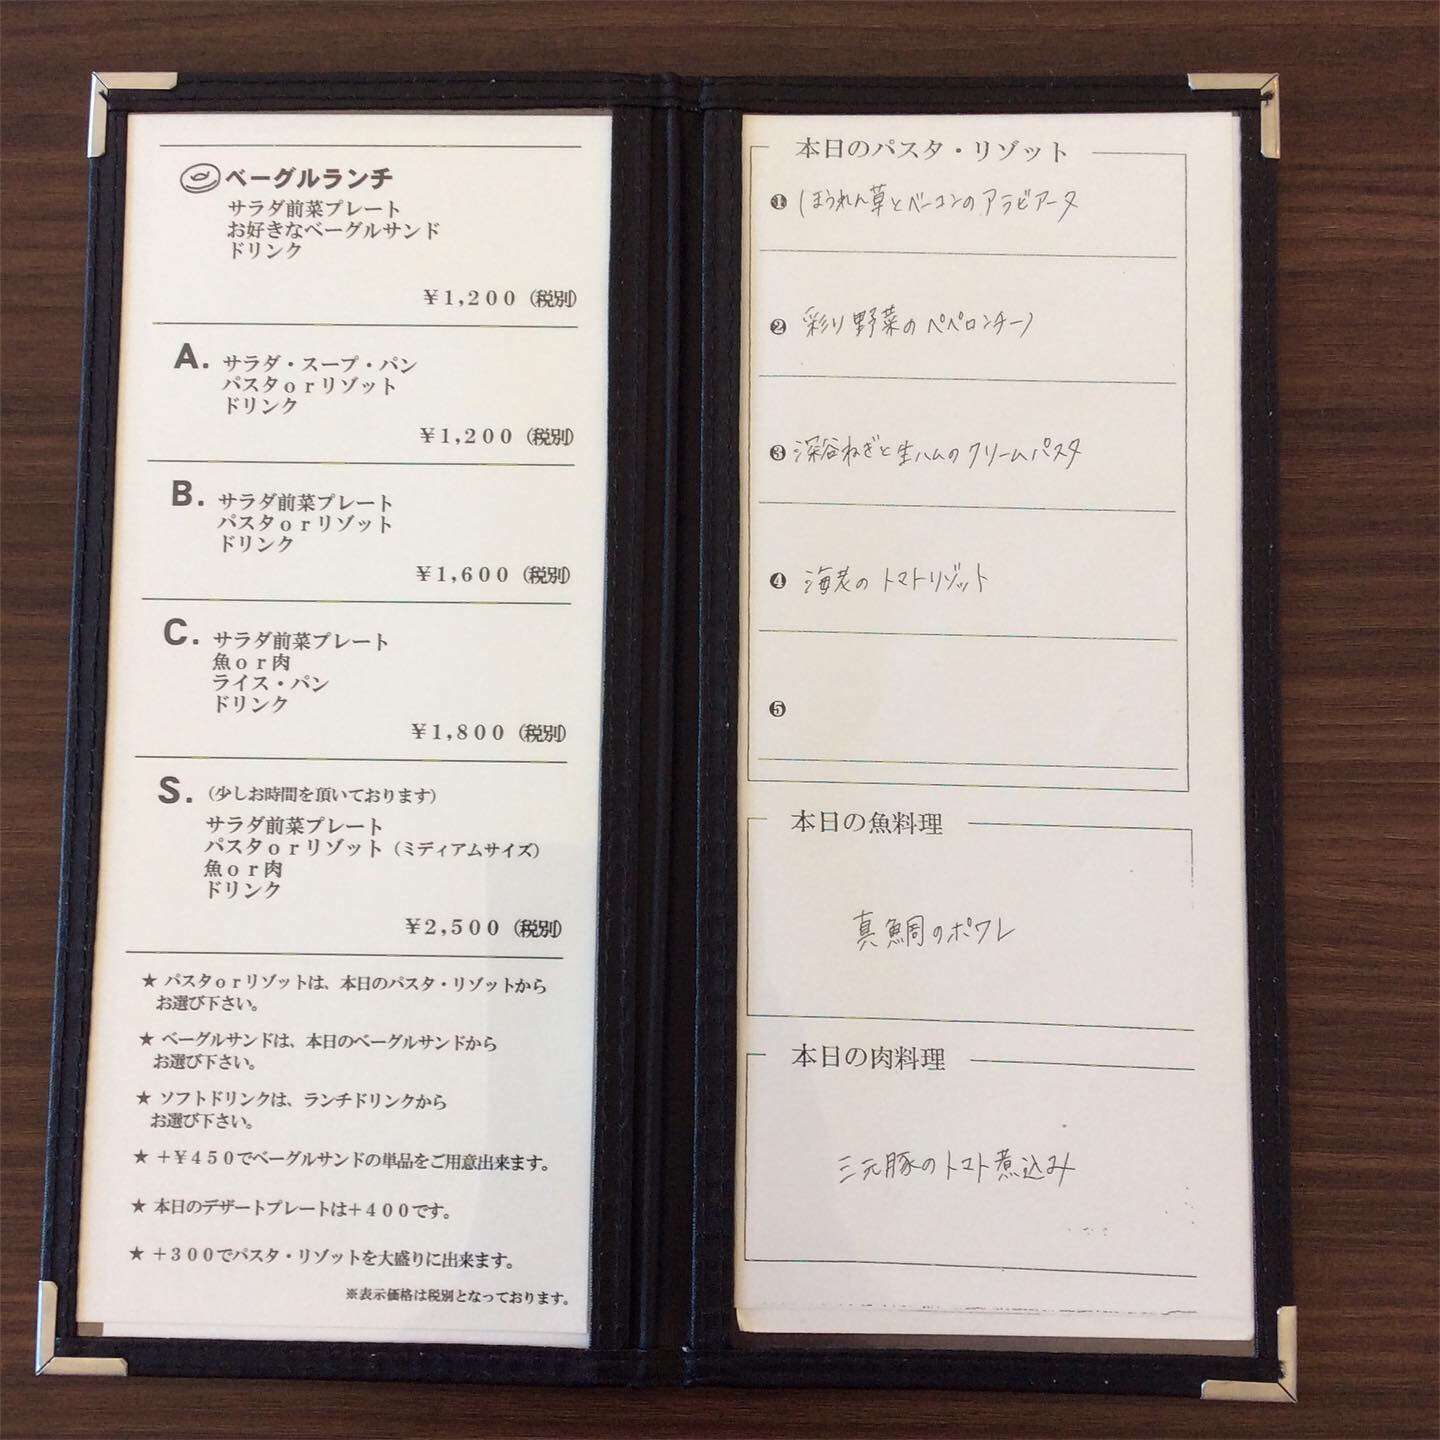 ベーグルランチ
サラダ前菜プレート
お好きなベーグルサンド
ドリンク
¥1,200(税別)
A. サラダ・スープ・パン
パスタorリゾット
ドリンク
¥1,200(税別)
B. サラダ前菜プレート
パスタorリゾット
ドリンク
¥1,600(税別)
C. サラダ前菜プレート
魚or肉
ライス・パン
ドリンク
¥1,800(税別)
S. (少しお時間を頂いております)
サラダ前菜プレート
パスタorリゾット(ミディアムサイズ)
魚or肉
ドリンク
¥2,500(税別)
★ パスタorリゾットは、本日のパスタ・リゾットから
お選び下さい。
★ ベーグルサンドは、本日のベーグルサンドから
お選び下さい。
★ ソフトドリンクは、ランチドリンクから
お選び下さい。
★ +¥450でベーグルサンドの単品をご用意出来ます。
★ 本日のデザートプレートは+400です。
★ +300でパスタ・リゾットを大盛りに出来ます。
※表示価格は税別となっております。
本日のパスタ・リゾット
❶ ほうれん草とベーコンのアラビアータ
❷ 彩り野菜のペペロンチーノ
❸ 深谷ねぎと生ハムのクリームパスタ
❹ 海老のトマトリゾット
❺
本日の魚料理
真鯛のポワレ
本日の肉料理
三元豚のトマト煮込み